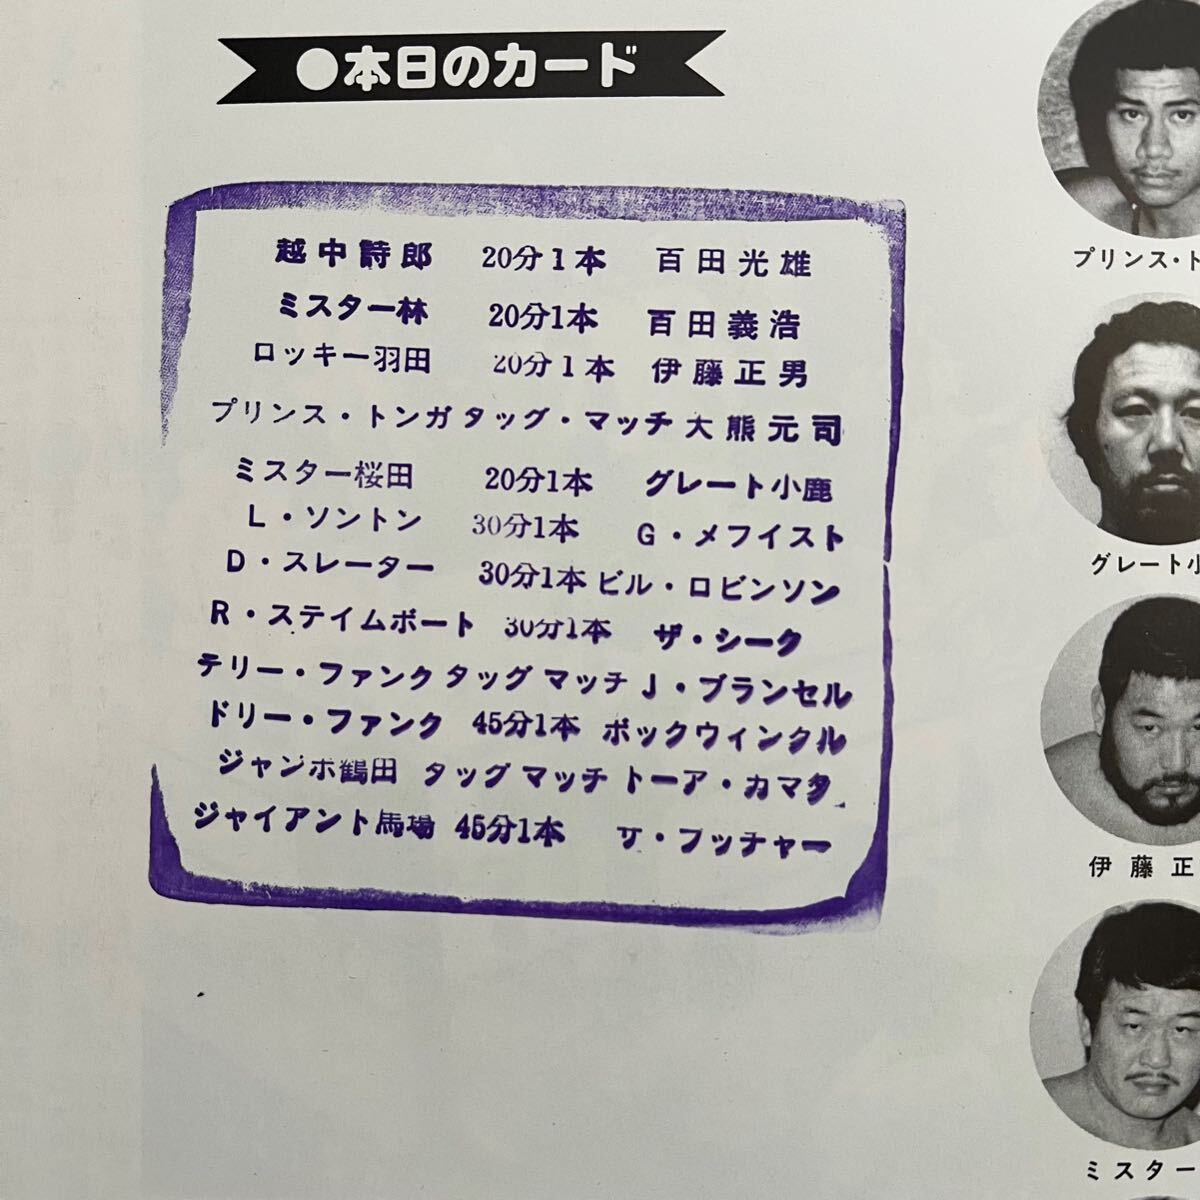 ●本日のカード
越中詩郎 20分1本 百田光雄
ミスター林 20分1本 百田義浩
ロッキー羽田 20分1本 伊藤正男
プリンス・トンガ タッグ・マッチ 大熊元司
ミスター桜田 20分1本 グレート小鹿
L・ソントン 30分1本 G・メフイスト
D・スレーター 30分1本 ビル・ロビンソン
R・ステイムボート 30分1本 ザ・シーク
テリー・ファンク タッグ マッチ J・ブランセル
ドリー・ファンク 45分1本 ボックウィンクル
ジャンボ鶴田 タッグ マッチ トーア・カマタ
ジャイアント馬場 45分1本 ザ・ブッチャー
プリンス・ト
グレート小
伊藤正
ミスター